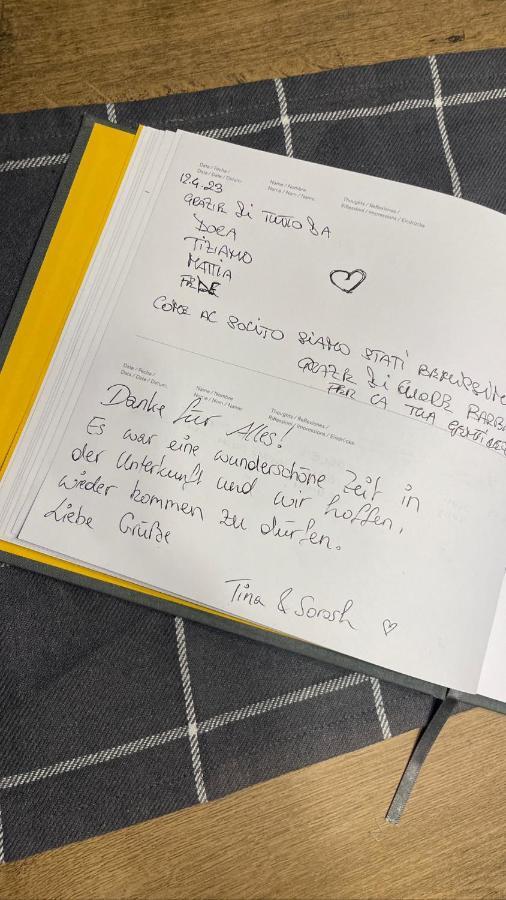 Date / Fecha /
Data / Date / Datum:
Name / Nombre
Name / Nom / Name:
Thoughts / Reflexiones /
Riflessioni / Impressions / Eindrücke
12.4.23
GRAZIE DI TUTTO DA
DORA
TIZIANO
MATTIA
FEDE
COME AL SOLITO SIAMO STATI BENISSIMO
GRAZIE DI CUORE BARBA
PER LA TUA
Date / Fecha /
Data / Date / Datum:
Name / Nombre
Name / Nom / Name:
Thoughts / Reflexiones /
Riflessioni / Impressions / Eindrücke
Danke für Alles!
Es war eine wunderschöne Zeit in
der Unterkunft und wir hoffen,
wieder kommen zu dürfen.
Liebe Grüße
Tina & Sorosh